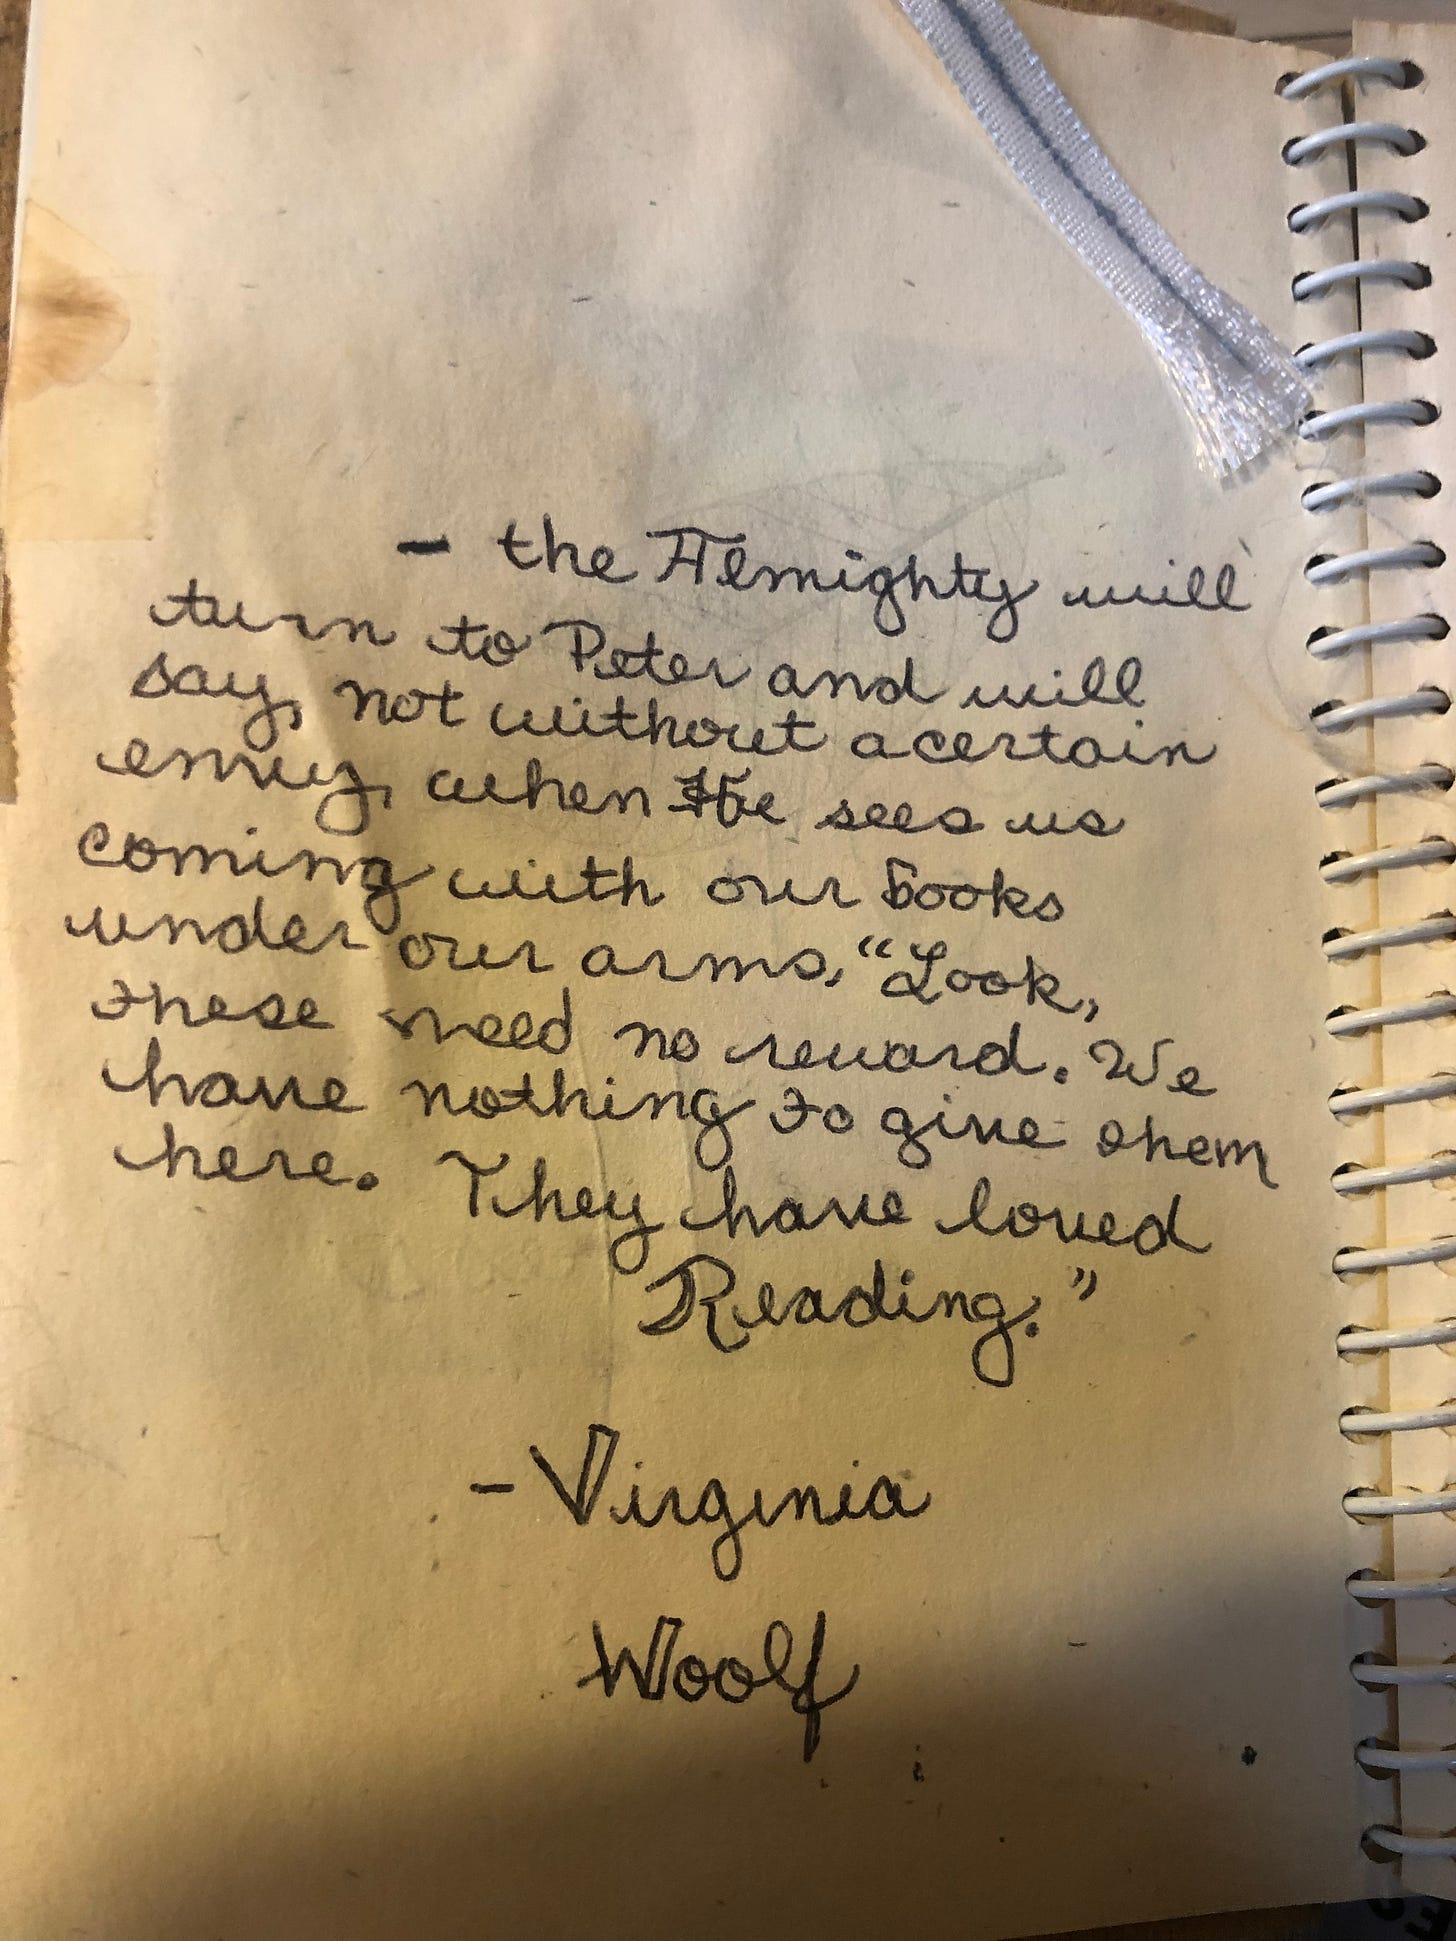 - the Almighty will
turn to Peter and will
say, not without a certain
envy, when He sees us
coming with our books
under our arms, "Look,
these need no reward. We
have nothing to give them
here. They have loved
Reading."
- Virginia
Woolf